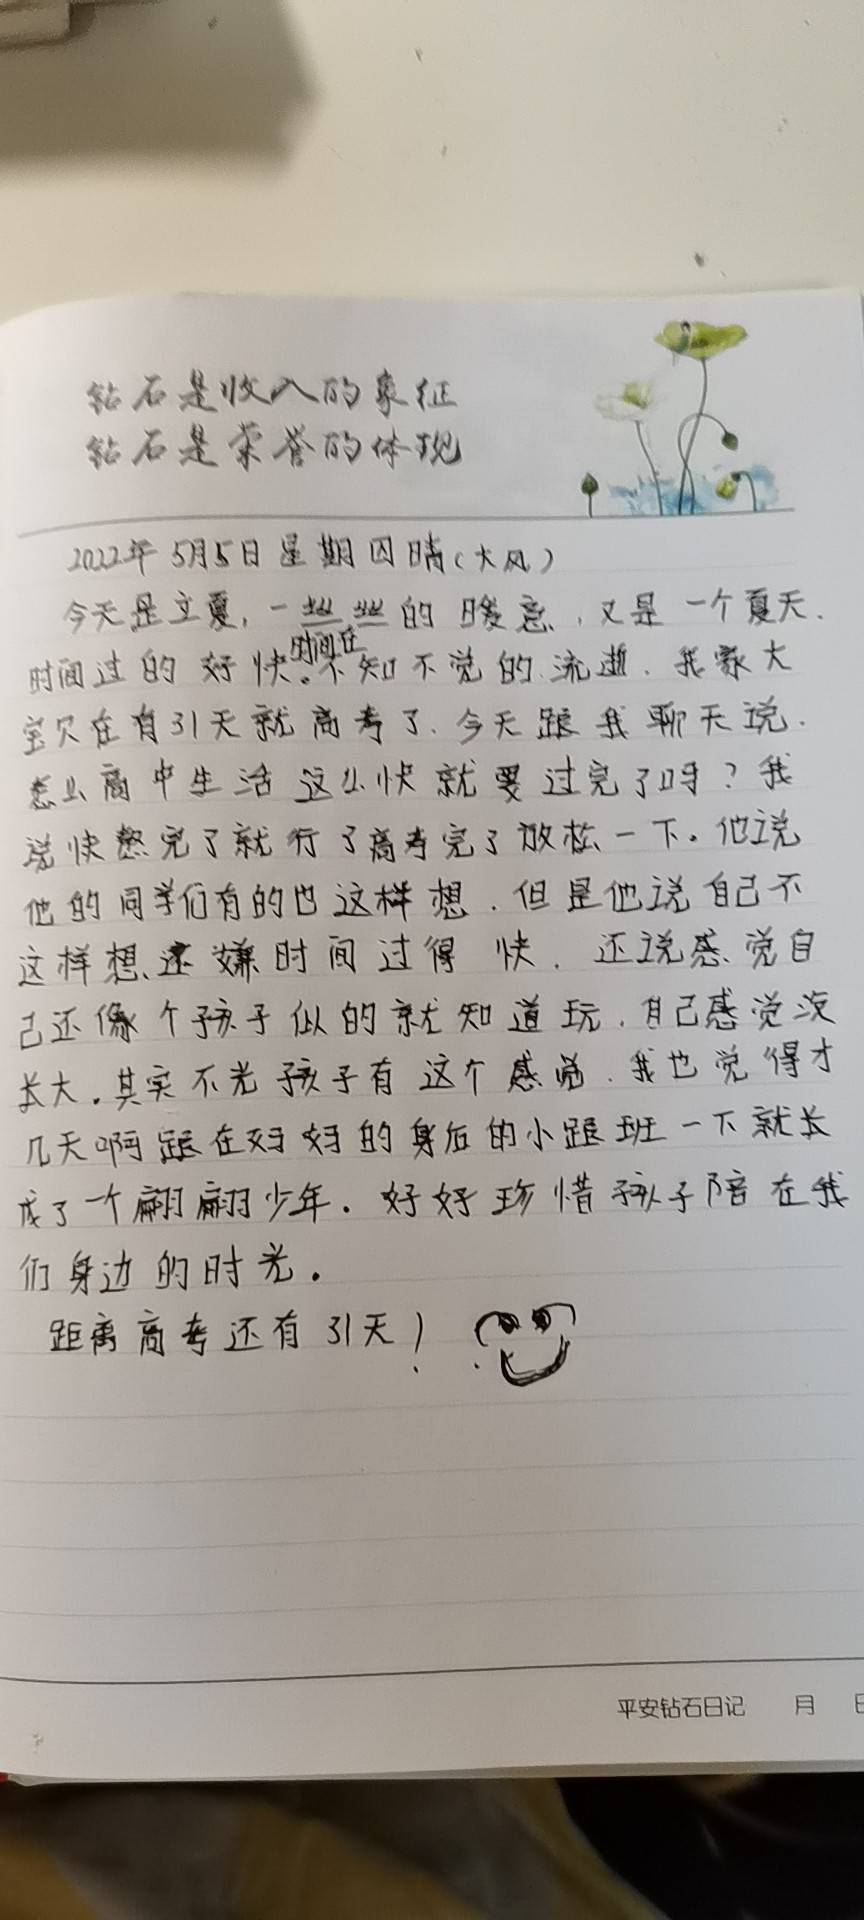 钻石是收入的象征
钻石是荣誉的体现
2022年5月5日星期四晴(大风)
今天是立夏,一丝丝的暖意,又是一个夏天.
时间过的好快。时间在不知不觉的流逝.我家大
宝贝在有31天就高考了.今天跟我聊天说.
怎么高中生活这么快就要过完了呀?我
说快熬完了就行了高考完了放松一下。他说
他的同学们有的也这样想.但是他说自己不
这样想、还嫌时间过得快.还说感觉自
己还像个孩子似的就知道玩.自己感觉没
长大.其实不光孩子有这个感觉.我也觉得才
几天啊跟在妈妈的身后的小跟班一下就长
成了一个翩翩少年.好好珍惜孩子陪在我
们身边的时光.
距离高考还有31天!
平安钻石日记 月 日